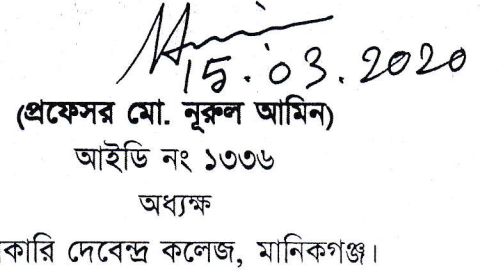 15.03.2020
(প্রফেসর মো. নূরুল আমিন)
আইডি নং ১৩৩৬
অধ্যক্ষ
কারি দেবেন্দ্র কলেজ, মানিকগঞ্জ।